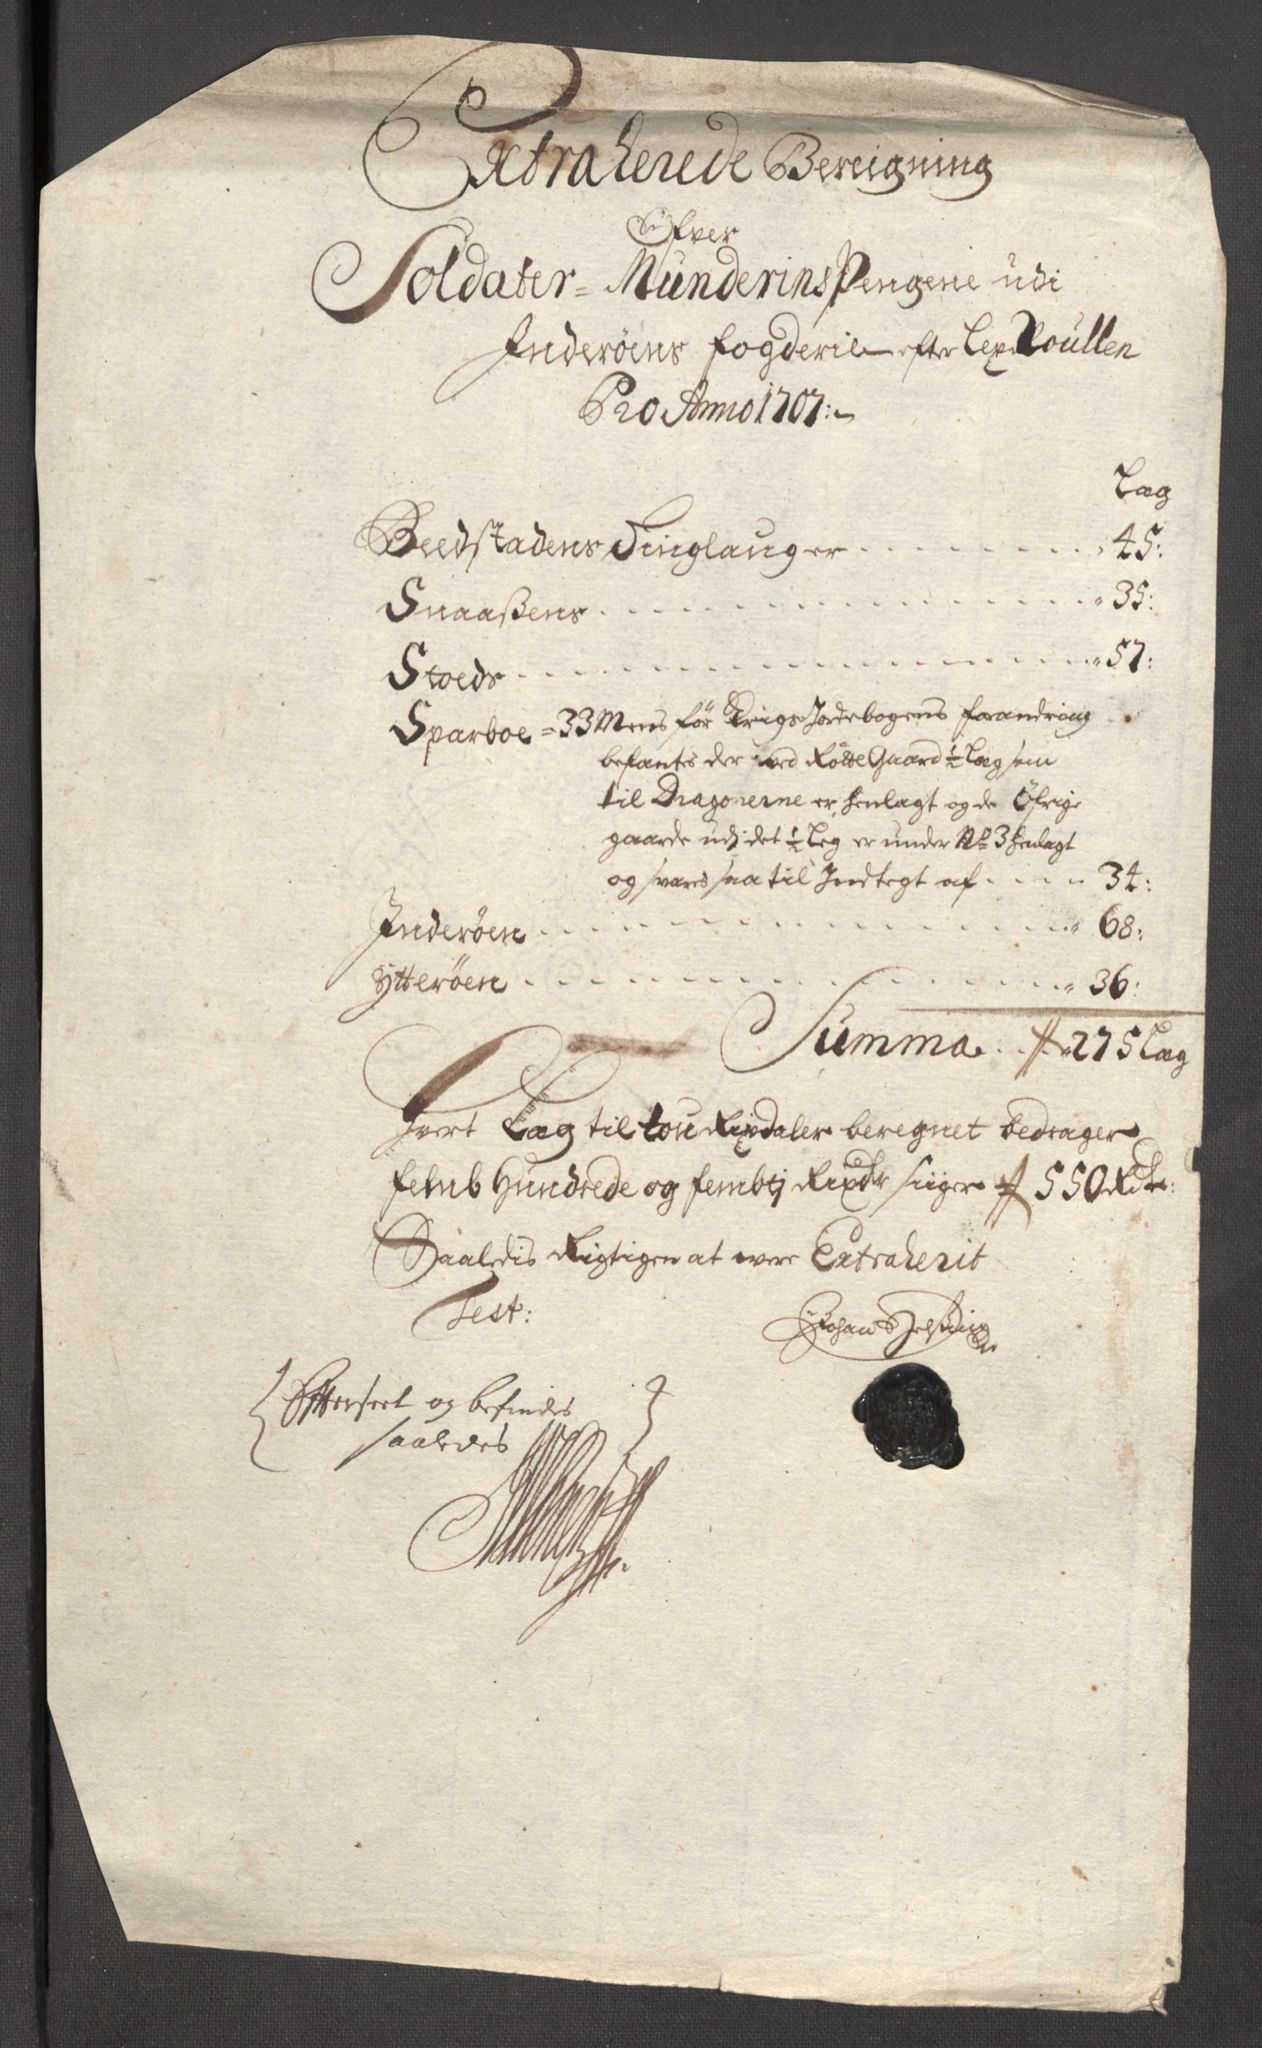 Extraherede Bereigning
Ofver
Soldater = Munderins Pengene udi
Inderöens fogderie efter Leg Roullen
Pro Anno 1707:
Læg
Beedstadens Tinglauger 45:
Snaaßens 35:
Stoeds 57:
Sparboe = 33 Mens för Krigs Jordebogens forandring
befantes der ved Rötte Gaard ½ Læg som
til Dragonerne er henlagt og de Öfrige
gaarde udj det ½ Leg er under No 3 henlagt
og svares saa til Indtegt af 34:
Inderöen 68:
Ytteröen 36:
Summa 275 Læg
Hvert Læg til tou Rixdaler beregnet bedrager
femb Hundrede og fembtj Rixdr siiger 550 Rdr:
Saaledis Rigtigen at were Extraherit
Test:
Johan
Efterseet og befindes
saaledes